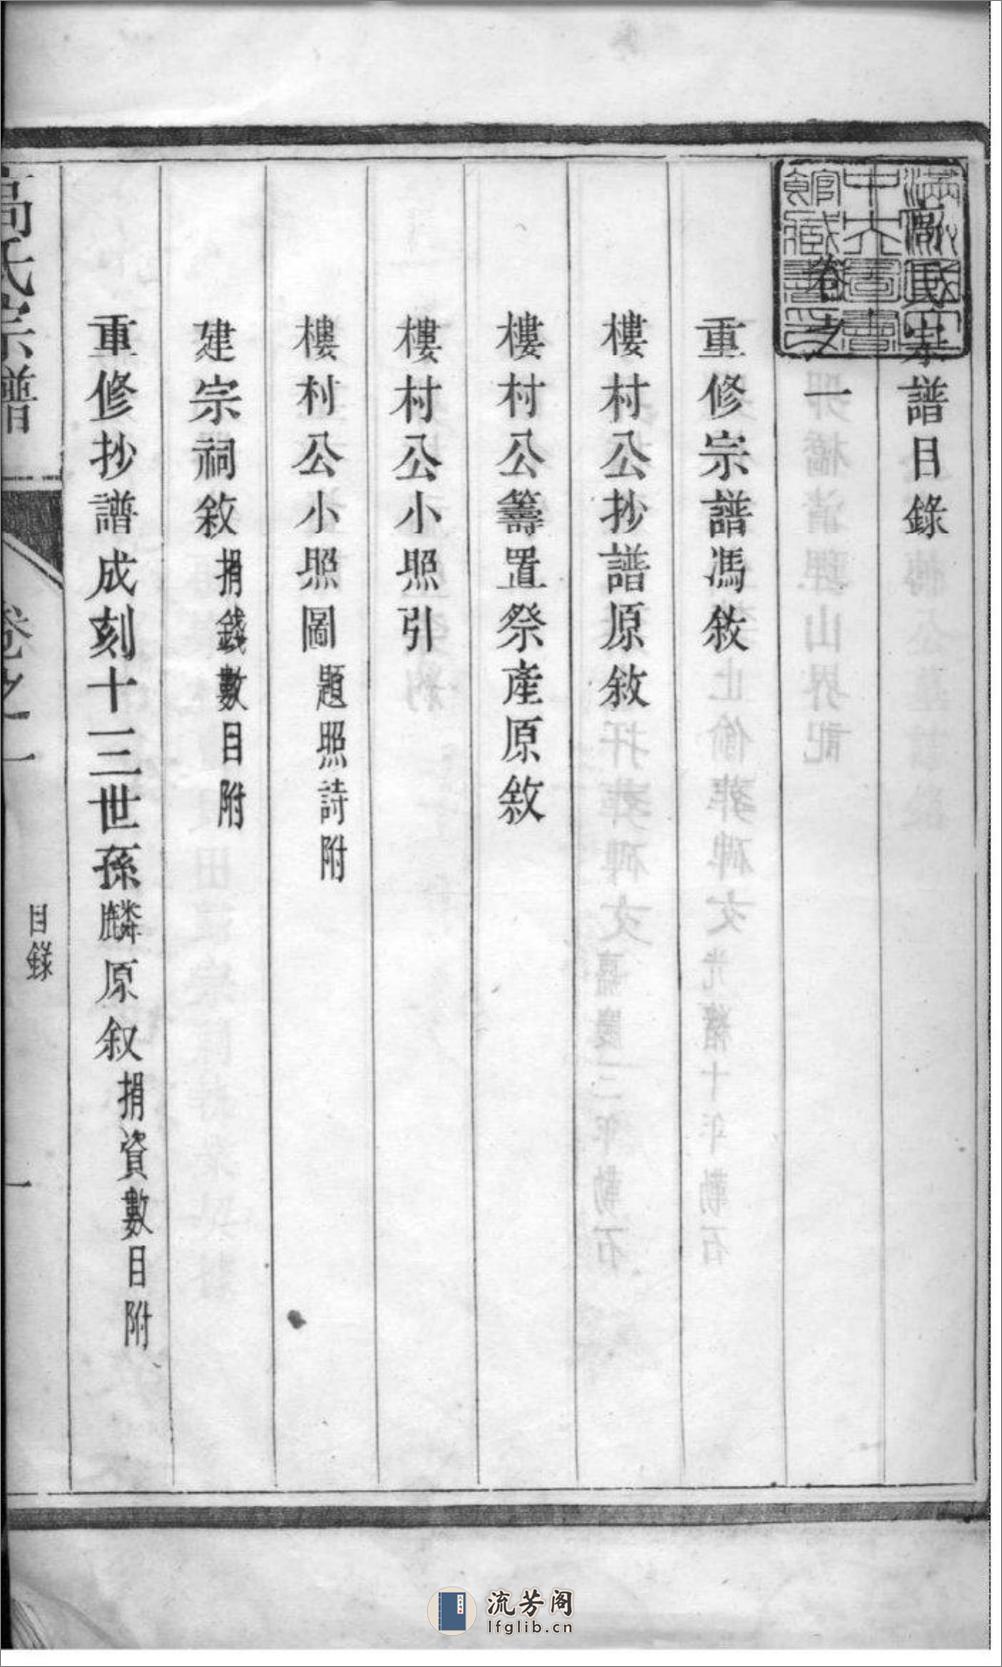 高氏宗譜目錄
卷之一
重修宗譜馮敘
樓村公抄譜原敘
樓村公籌置祭產原敘
樓村公小照引
樓村公小照圖 題照詩附
建宗祠敘 捐錢數目附
重修抄譜成刻十三世孫麟原叙 捐資數目附
高氏宗譜 卷之一 目錄 一
流芳阁
lfglib.cn